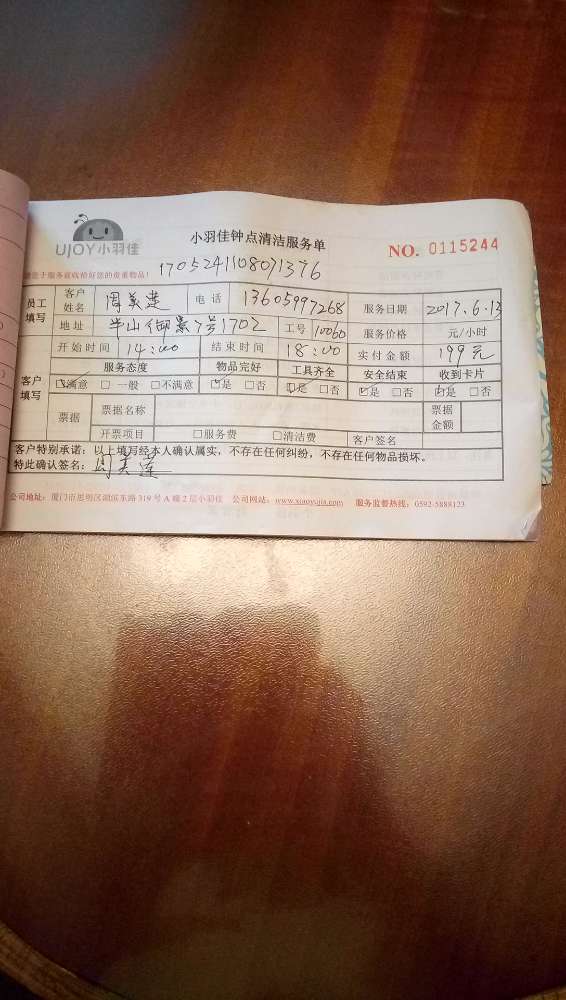 UJOY小羽佳
小羽佳钟点清洁服务单
NO. 0115244
请您于服务前收拾好您的贵重物品!
1705241108071376
员工填写 客户姓名 周美莲 电话 13605997268 服务日期 2017.6.13
地址 半山御景7号1702 工号 10060 服务价格 元/小时
开始时间 14:00 结束时间 18:00 实付金额 199元
客户填写 服务态度 物品完好 工具齐全 安全结束 收到卡片
☑满意 □一般 □不满意 ☑是 □否 ☑是 □否 ☑是 □否 ☑是 □否
票据 票据名称 票据金额
开票项目 □服务费 □清洁费 客户签名
客户特别承诺:以上填写经本人确认属实,不存在任何纠纷,不存在任何物品损坏。
特此确认签名:周美莲
公司地址:厦门市思明区湖滨东路319号A幢2层小羽佳 公司网站:www.xiaoyujia.com 服务监督热线:0592-5888123